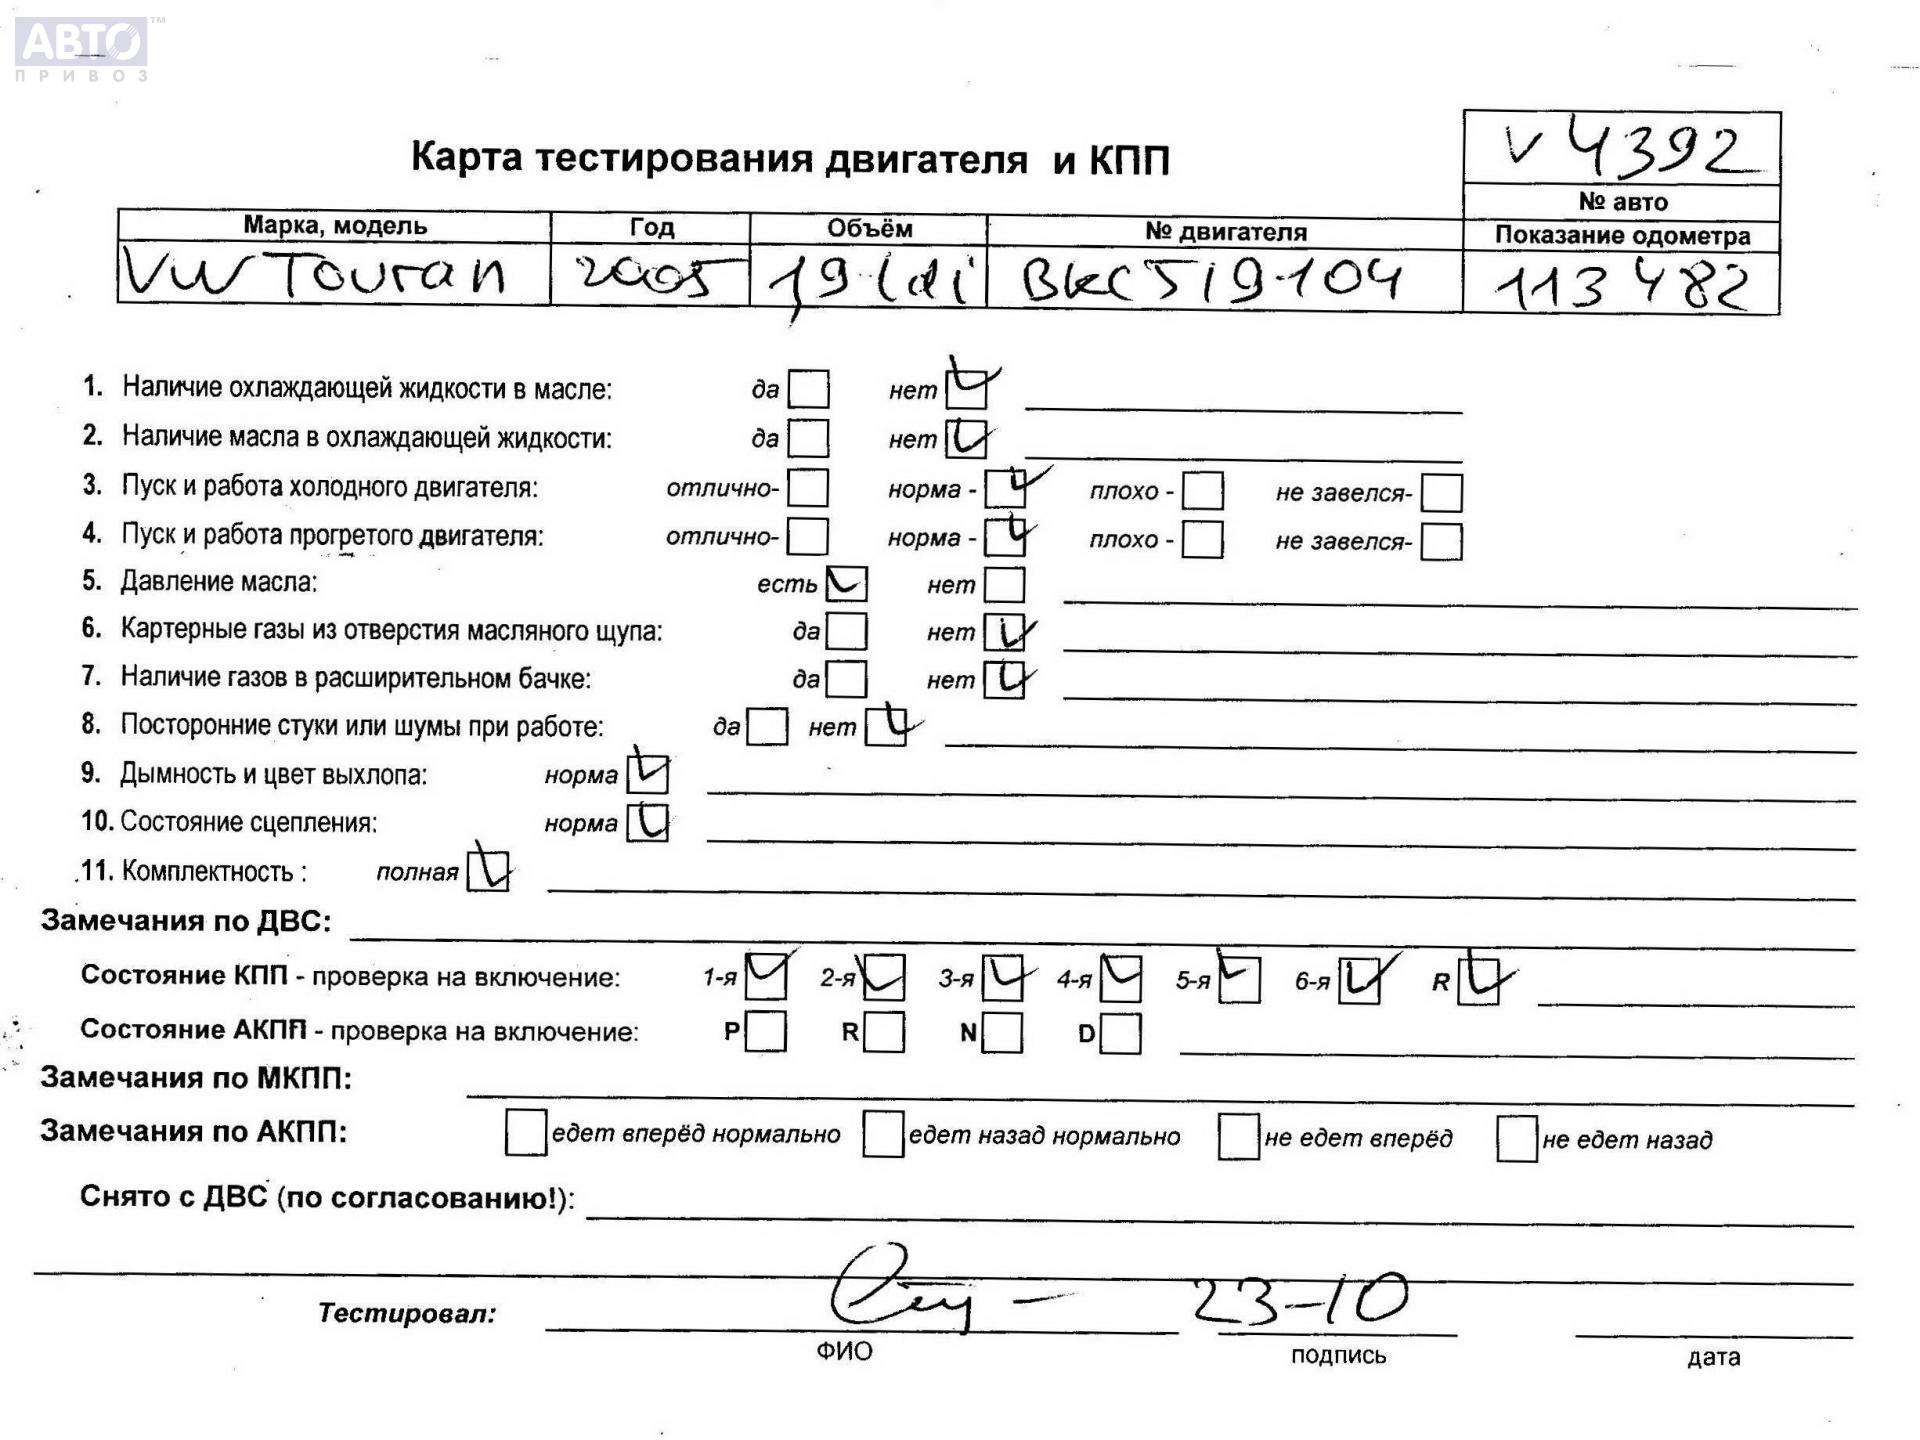 АВТО™
ПРИВОЗ
v 4392
Карта тестирования двигателя и КПП
№ авто
Марка, модель Год Объём № двигателя Показание одометра
VW Touran 2005 1,9 tdi BKC 519104 113482
1. Наличие охлаждающей жидкости в масле: да нет
2. Наличие масла в охлаждающей жидкости: да нет
3. Пуск и работа холодного двигателя: отлично- норма - плохо - не завелся-
4. Пуск и работа прогретого двигателя: отлично- норма - плохо - не завелся-
5. Давление масла: есть нет
6. Картерные газы из отверстия масляного щупа: да нет
7. Наличие газов в расширительном бачке: да нет
8. Посторонние стуки или шумы при работе: да нет
9. Дымность и цвет выхлопа: норма
10. Состояние сцепления: норма
11. Комплектность : полная
Замечания по ДВС:
Состояние КПП - проверка на включение: 1-я 2-я 3-я 4-я 5-я 6-я R
Состояние АКПП - проверка на включение: P R N D
Замечания по МКПП:
Замечания по АКПП: едет вперёд нормально едет назад нормально не едет вперёд не едет назад
Снято с ДВС (по согласованию!):
Тестировал: 23-10
ФИО подпись дата